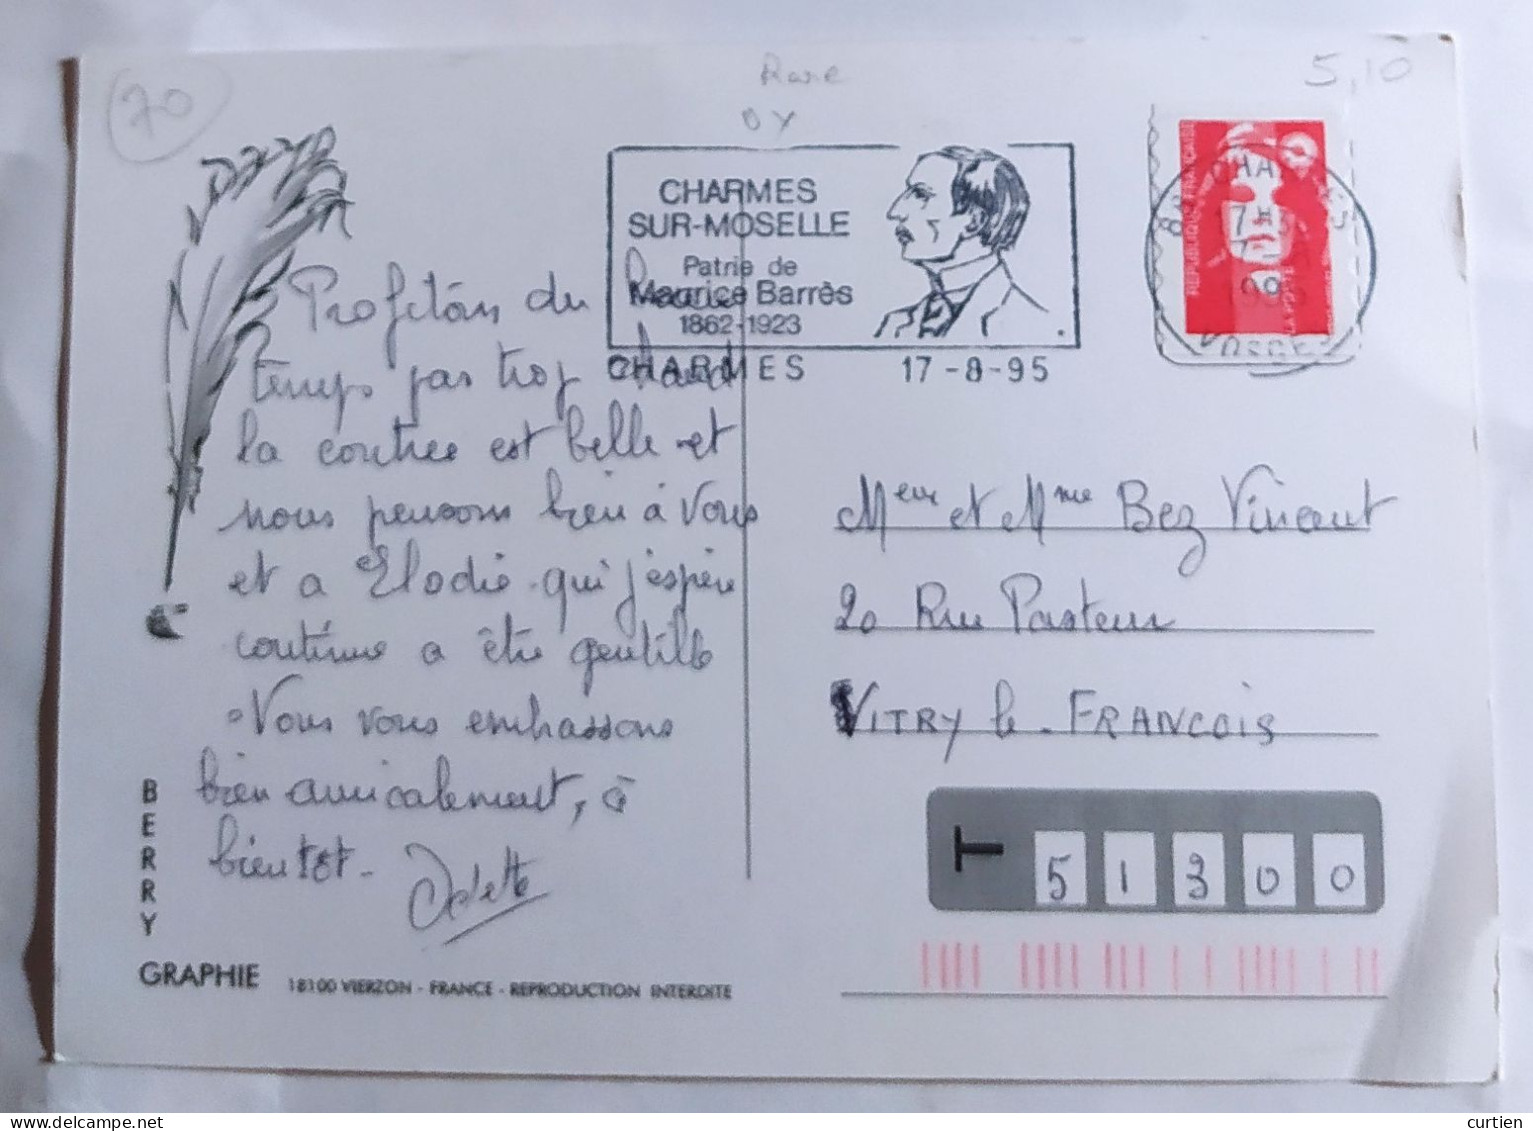 70
Rare
5,10
CHARMES
SUR-MOSELLE
Patrie de
Maurice Barrès
1862-1923
CHARMES 17-8-95
REPUBLIQUE FRANÇAISE
LA POSTE
VOSGES
Profitons du beau
temps pas trop chaud
la contrée est belle et
nous pensons bien à vous
et a Elodie qui j'espère
continue a être gentille
Nous vous embrassons
bien amicalement, à
bientôt. Odette
Meur et Mme Bez Vincent
20 Rue Pasteur
VITRY le FRANCOIS
T 51300
BERRY
GRAPHIE 18100 VIERZON - FRANCE - REPRODUCTION INTERDITE
delcampe.net
curtien